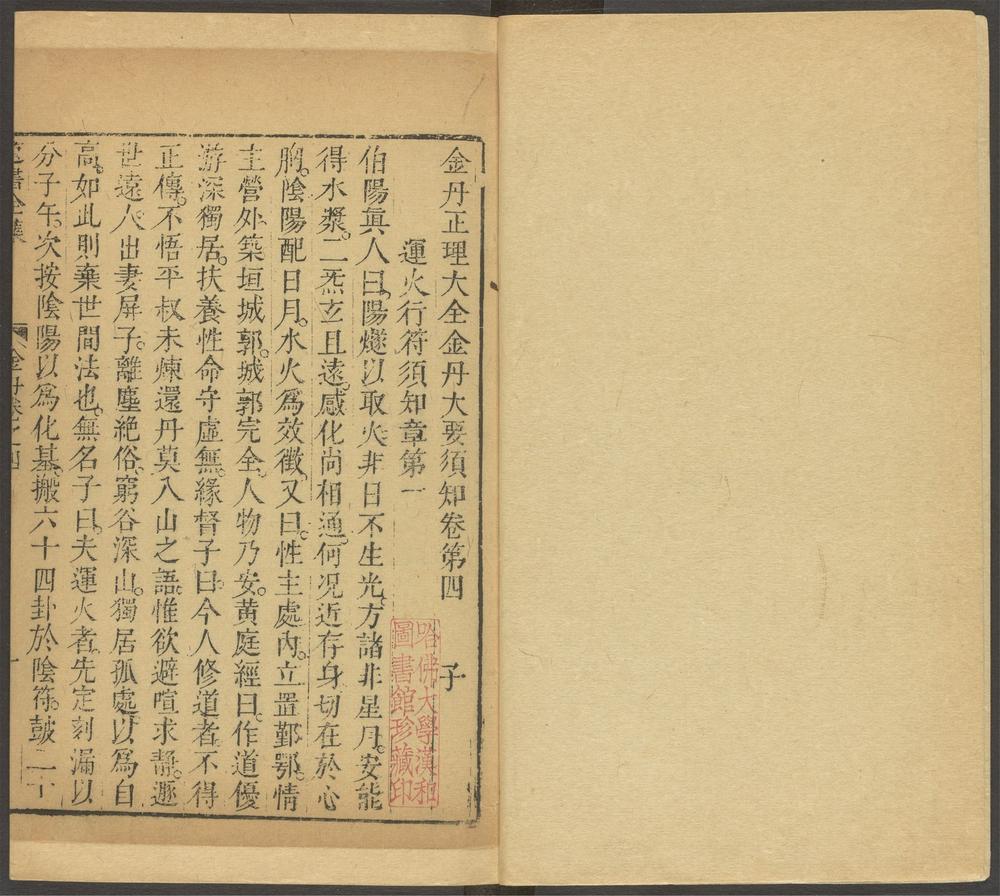 金丹正理大全金丹大要須知卷第四　子
運火行符須知章第一
伯陽眞人曰。陽燧以取火。非日不生光。方諸非星月。安能
得水漿。二炁玄且遠。感化尚相通。何况近存身。切在於心
胷。陰陽配日月。水火爲效徵。又曰。性主處內。立置鄞鄂。情
主營外。築垣城郭。城郭完全。人物乃安。黄庭經曰。作道優
游深獨居。扶養性命守虛無。緣督子曰。今人修道者。不得
正傳。不悟平叔未煉還丹莫入山之語。惟欲避喧求靜。遯
世遠人。出妻屏子。離塵絶俗。窮谷深山。獨居孤處。以爲自
高。如此則棄世間法也。無名子曰。夫運火者。先定刻漏以
分子午。次按陰陽以爲化基。搬六十四卦於陰符。鼓二十
金丹卷之四
哈佛大學漢和
圖書館珍藏印